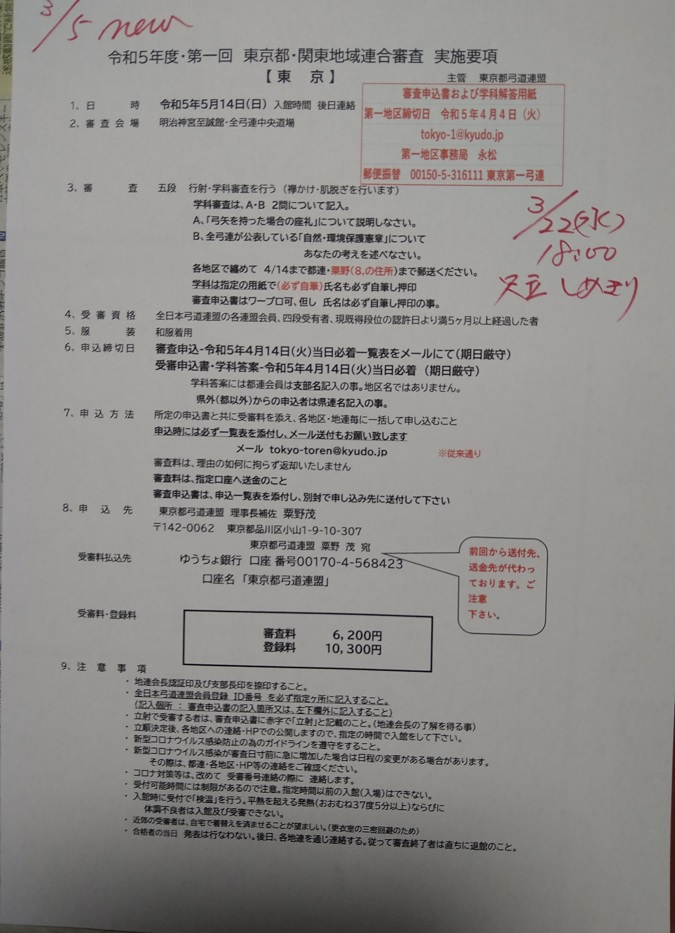 3/5 new
令和5年度・第一回 東京都・関東地域連合審査 実施要項
【 東 京 】
主管 東京都弓道連盟
審査申込書および学科解答用紙
第一地区締切日 令和5年4月4日(火)
tokyo-1@kyudo.jp
第一地区事務局 永松
郵便振替 00150-5-316111 東京第一弓連
1、日 時 令和5年5月14日(日) 入館時間 後日連絡
2、審査会場 明治神宮至誠館・全弓連中央道場
3、審 査 五段 行射・学科審査を行う (襷かけ・肌脱ぎを行います)
学科審査は、A・B 2問について記入。
A、「弓矢を持った場合の座礼」について説明しなさい。
B、全弓連が公表している「自然・環境保護憲章」について
あなたの考えを述べなさい。
各地区で纏めて 4/14まで都連・粟野(8,の住所)まで郵送ください。
学科は指定の用紙で(必ず自筆)氏名も必ず自筆し押印
審査申込書はワープロ可、但し 氏名は必ず自筆し押印の事。
3/22(水)
18:00
足立 しめきり
4、受審資格 全日本弓道連盟の各連盟会員、四段受有者、現既得段位の認許日より満5ヶ月以上経過した者
5、服 装 和服着用
6、申込締切日 審査申込-令和5年4月14日(火)当日必着一覧表をメールにて(期日厳守)
受審申込書・学科答案-令和5年4月14日(火)当日必着 (期日厳守)
学科答案には都連会員は支部名記入の事。地区名ではありません。
県外(都以外)からの申込者は県連名記入の事。
7、申込方法 所定の申込書と共に受審料を添え、各地区・地連毎に一括して申し込むこと
申込時には必ず一覧表を添付し、メール送付もお願い致します
メール tokyo-toren@kyudo.jp ※従来通り
審査料は、理由の如何に拘らず返却いたしません
審査料は、指定口座へ送金のこと
審査申込書は、申込一覧表を添付し、別封で申し込み先に送付して下さい
8、申込先 東京都弓道連盟 理事長補佐 粟野茂
〒142-0062 東京都品川区小山1-9-10-307
東京都弓道連盟 粟野 茂 宛
受審料払込先 ゆうちょ銀行 口座 番号00170-4-568423
口座名 「東京都弓道連盟」
前回から送付先、
送金先が代わっ
ております。ご
注意
下さい。
受審料・登録料
審査料 6,200円
登録料 10,300円
9、注意事項
・ 地連会長認証印及び支部長印を捺印すること。
・ 全日本弓道連盟会員登録 ID番号 を必ず指定ヶ所に記入すること。
(記入個所 : 審査申込書の記入箇所又は、左下欄外に記入すること)
・ 立射で受審する者は、審査申込書に赤字で「立射」と記載のこと。(地連会長の了解を得る事)
・ 立順決定後、各地区への連絡・HPでの公開しますので、指定の時間で入館をして下さい。
・ 新型コロナウイルス感染防止の為のガイドラインを遵守をすること。
・ 新型コロナウイルス感染が審査日寸前に急に増加した場合は日程の変更がある場合があります。
その際は、都連・各地区・HP等の連絡をご確認ください。
・ コロナ対策等は、改めて 受審番号連絡の際に 連絡します。
・ 受付可能時間には制限があるので注意。指定時間以前の入館(入場)はできない。
・ 入館時に受付で「検温」を行う。平熱を超える発熱(おおむね37度5分以上)ならびに
体調不良者は入館及び受審できない。
・ 近郊の受審者は、自宅で着替えを済ませることが望ましい。(更衣室の三密回避のため)
・ 合格者の当日 発表は行なわない。後日、各地連を通じ連絡する。従って審査終了者は直ちに退館のこと。